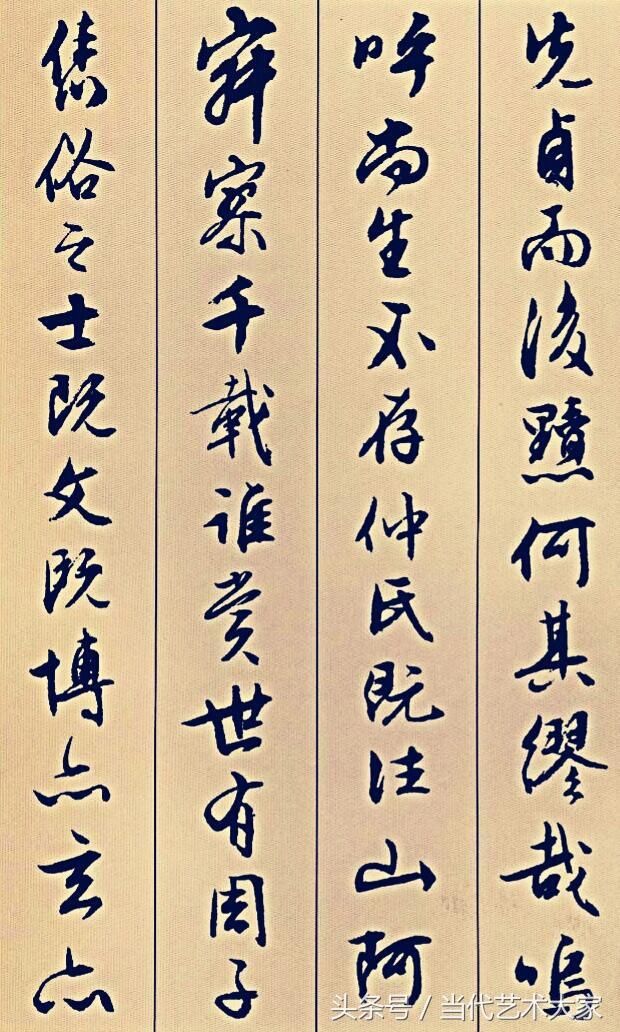 先貞而後黷何其繆哉嗚
呼尚生不存仲氏既往山阿
寂寥千載誰賞世有周子
雋俗之士既文既博亦玄亦
头条号 / 当代艺术大家